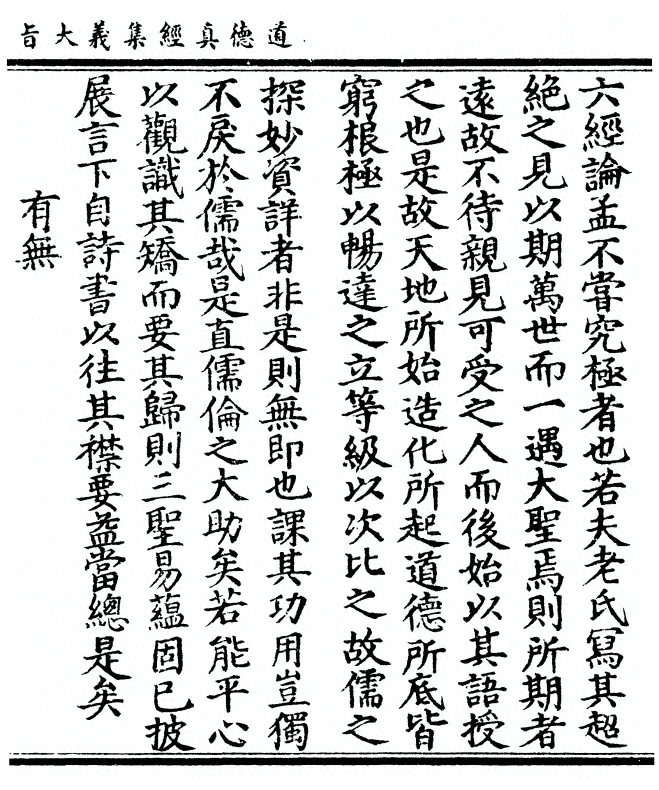 道德真經集義大旨
六經論孟不甞究極者也若夫老氏冩其超
絶之見以期萬世而一遇大聖焉則所期者
遠故不待親見可受之人而後始以其語授
之也是故天地所始造化所起道德所底皆
窮根極以暢達之立等級以次比之故儒之
探妙資詳者非是則無即也課其功用豈獨
不戾於儒哉是直儒倫之大助矣若能平心
以觀識其矯而要其歸則三聖易蘊固已披
展言下自詩書以往其襟要葢當總是矣
有無